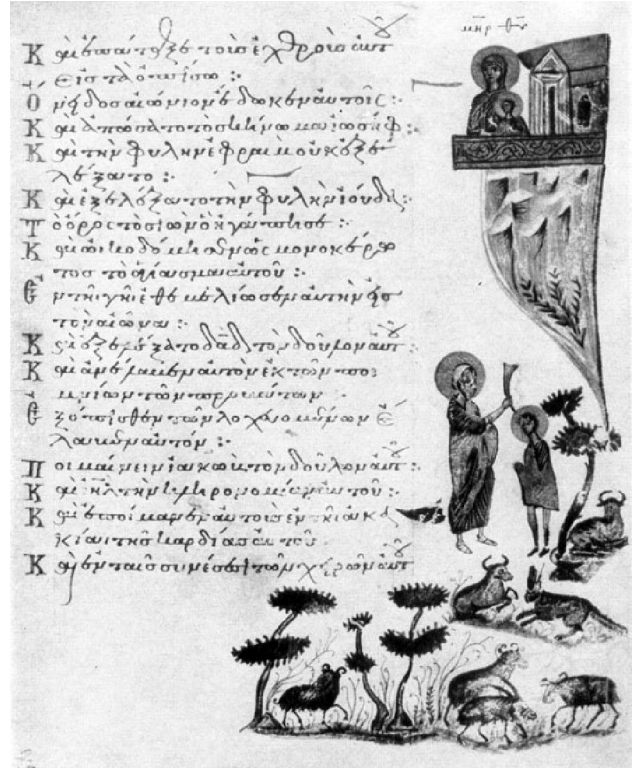 μηρ θυ
Καὶ ἐπάταξε τοὺς ἐχθροὺς αὐτ
εἰς τὰ ὀπίσω :·
Ὄνειδος αἰώνιον ἔδωκεν αὐτοῖς :·
Καὶ ἀπώσατο τὸ σκήνωμα ἰωσήφ :·
Καὶ τὴν φυλὴν ἐφραὶμ οὐκ ἐξε
λέξατο :·
Καὶ ἐξελέξατο τὴν φυλὴν ἰούδα :·
Τὸ ὄρος τὸ σιὼν ὃ ἠγάπησε :·
Καὶ ὠικοδόμησεν ὡς μονοκέρω
τος τὸ ἁγίασμα αὐτοῦ :·
Ἐν τῆι γῆι ἐθεμελίωσεν αὐτὴν εἰς
τὸν αἰῶνα :·
Καὶ ἐξελέξατο δαδ τὸν δοῦλον αὐτ :·
Καὶ ἀνέλαβεν αὐτὸν ἐκ τῶν ποι
μνίων τῶν προβάτων :·
Ἐξόπισθεν τῶν λοχευομένων ἔ
λαβεν αὐτόν :·
Ποιμαίνειν ἰακὼβ τὸν δοῦλον αὐτ :·
Καὶ ιηλ τὴν κληρονομίαν αὐτοῦ :·
Καὶ ἐποίμανεν αὐτοὺς ἐν τῆι ἀκα
κίαι τῆς καρδίας αὐτοῦ
Καὶ ἐν ταῖς συνέσεσι τῶν χειρῶν αὐτ